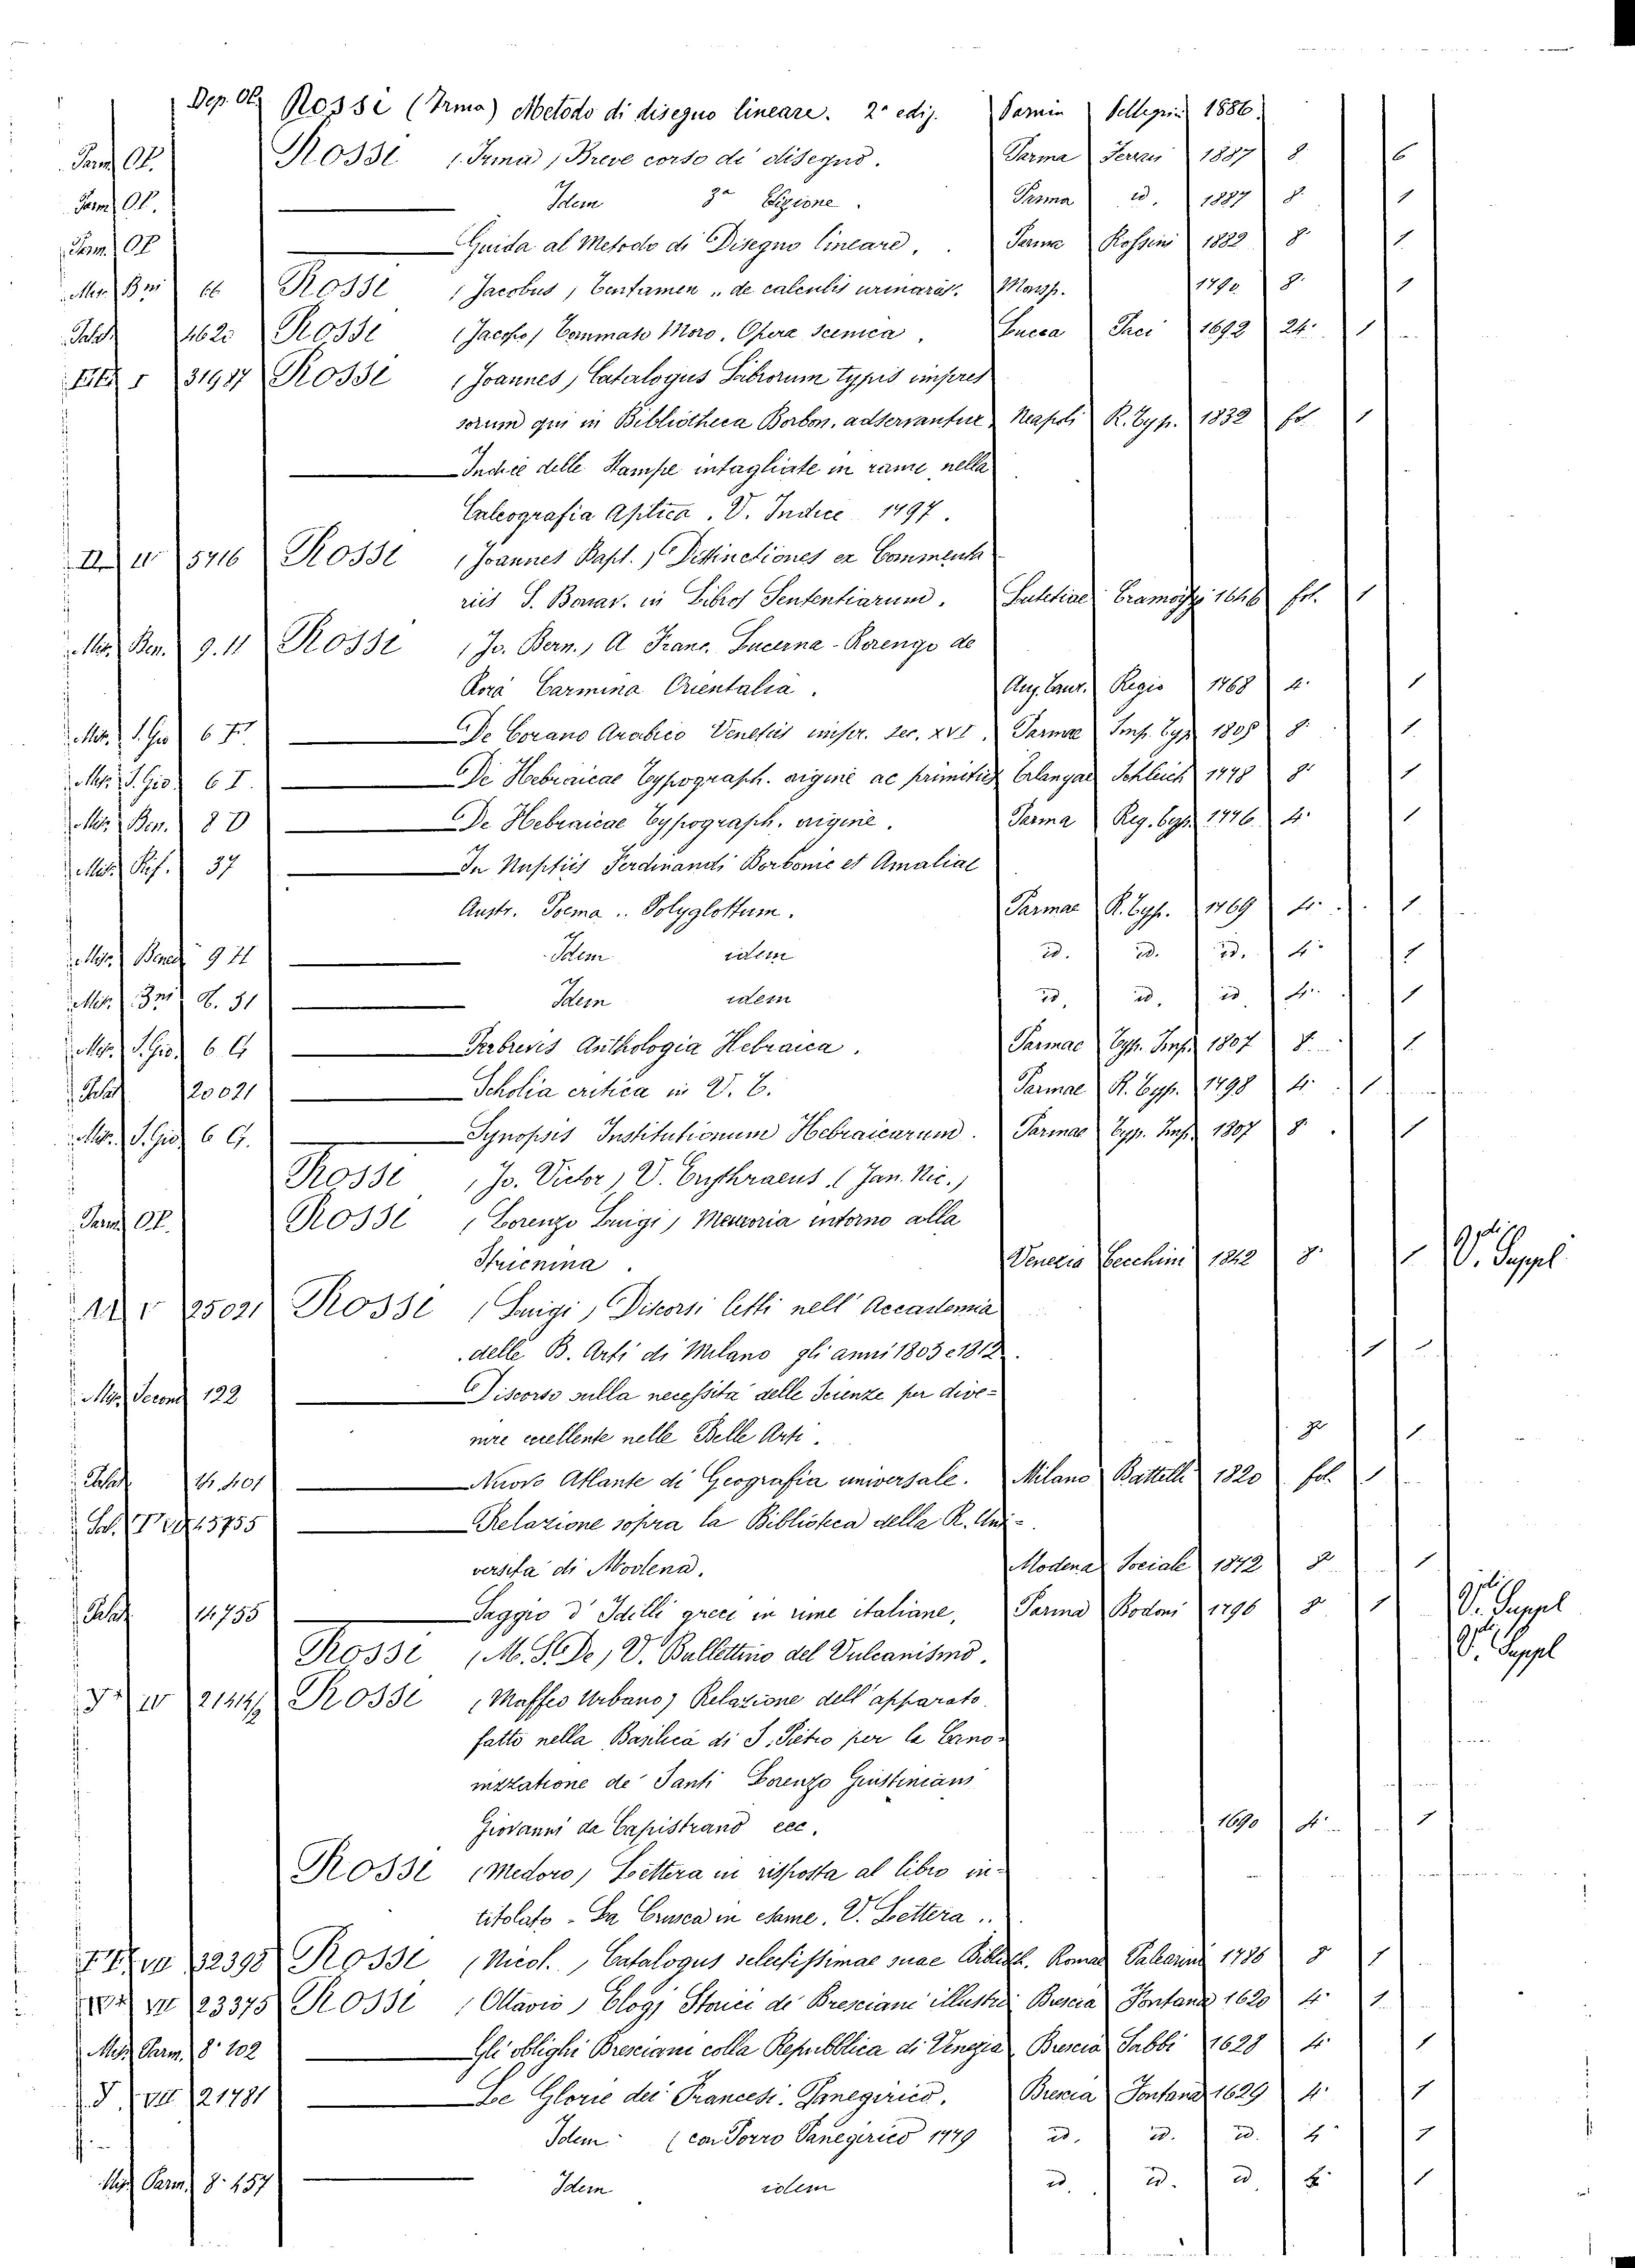 Dep. Ob. Rossi (Irma) Metodo di disegno lineare. 2ª ediz. Parmin Pellegrini 1886.
Parm. Ob. Rossi (Irma) Breve corso di disegno. Parma Ferrari 1887 8. 6
Parm. Ob. Idem 3ª Edizione. Parma id. 1887 8. 1
Parm. Ob. Guida al Metodo di Disegno lineare. Parma Rossini 1882 8. 1
Misc. 66 Rossi (Jacobus) Tentamen de calculis urinariis. Monsp. 1790 8. 1
Palat. 4620 Rossi (Jacopo) Tommaso Moro, Opera Scenica. Lucca Paci 1692 24. 1
31987 Rossi (Joannes) Catalogus Librorum typis impres
sorum qui in Bibliotheca Borbon. adservantur Neapoli R. Typ. 1832 fol. 1
Indice delle Stampe intagliate in rame nella
Calcografia Aplica. V. Indice 1797.
II 5716 Rossi (Joannes Bapt.) Distinctiones ex Commenta
riis S. Bonav. in Libros Sententiarum. Lutetiae Cramoisy 1646 fol. 1
Misc. Ben. 9. 11 Rossi (Jo. Bern.) A Franc. Lucerna-Rorengo de
Rorà Carmina Orientalia. Aug. Taur. Regio 1768 4. 1
Misc. S. Gio. 6 De Corano Arabico Venetiis impr. sec. XVI. Parmae Imp. Typ. 1805 8. 1
Misc. S. Gio. 6 I. De Hebraicae Typograph. origine ac primitiis Erlangae Schleich 1778 8. 1
Misc. Ben. 8 D De Hebraicae Typograph. origine. Parma Reg. typ. 1776 4. 1
Misc. 37 In Nuptiis Ferdinandi Borbonie et Amaliae
Austr. Poema Polyglottum. Parmae R. Typ. 1769 4. 1
Misc. Bened. 9 Idem idem id. id. id. 4. 1
Misc. 8. 31 Idem idem id. id. id. 4. 1
Misc. S. Gio. 6 G Perbrevis Anthologia Hebraica. Parmae Typ. Imp. 1807 8. 1
Palat. 20021 Scholia critica in V. T. Parmae R. Typ. 1798 4. 1
Misc. S. Gio. 6 G. Synopsis Institutionum Hebraicarum. Parmae Typ. Imp. 1807 8. 1
Rossi (Jo. Victor) V. Erythraeus (Jan. Nic.)
Parm. Ob. Rossi (Lorenzo Luigi) Memoria intorno alla
Stricnina. Venezia Cecchini 1842 8. 1 V. Suppl.
25021 Rossi (Luigi) Discorsi letti nell' Accademia
delle B. Arti di Milano gli anni 1803 e 1812. 1
Misc. Second. 122 Discorso sulla necessità delle Scienze per dive-
nire eccellente nelle Belle Arti. 8. 1
Palat. 401 Nuovo Atlante di Geografia universale. Milano Battelli 1820 fol. 1
15755 Relazione sopra la Biblioteca della R. Uni-
versità di Modena. Modena Sociale 1872 8. 1
Palat. 14755 Saggio d' Idilli greci in rime italiane, Parma Bodoni 1796 8. 1 V. Suppl.
Rossi (M. S. De) V. Bullettino del Vulcanismo. V. Suppl.
Rossi (Maffeo Urbano) Relazione dell' apparato
fatto nella Basilica di S. Pietro per la Cano-
nizzatione de Santi Lorenzo Giustiniani
Giovanni da Capistrano ecc. 1690 4. 1
Rossi (Medoro) Lettera in risposta al libro in-
titolato - La Crusca in esame. V. Lettera..
VII 32398 Rossi (Nicol.) Catalogus selectissimae suae Biblioth. Romae Palearini 1786 8 1
VII 23375 Rossi (Ottavio) Elogi Storici di Bresciani illustri Brescia Fontana 1620 4. 1
Misc. Parm. 8° 102 Gli oblighi Bresciani colla Repubblica di Venezia Brescia Sabbi 1628 4. 1
VII 21781 Le Glorie dei Francesi. Panegirico. Brescia Fontana 1629 4. 1
Idem (con Porro Panegirico 1779 id. id. id. 4. 1
Misc. Parm. 8. 157 Idem idem id. id. id. 4. 1